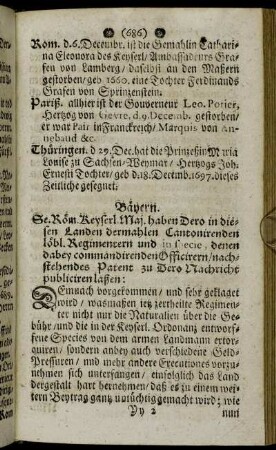 (686)
Rom. d. 6. Decembr. ist die Gemahlin Cathari-
na Eleonora des Keyserl. Ambassadeurs Gra-
fen von Lamberg / daselbst an den Maßern
gestorben / geb. 1660. eine Tochter Ferdinands
Grafen von Sprinzenstein.
Pariß. allhier ist der Gouverneur Leo. Potier,
Hertzog von Gevre. d. 9 Decemb. gestorben /
er war Pair in Franckreich / Marquis von An-
nebaud &c.
Thüringen. d. 29. Dec. hat die Prinzeßin Ma-
ria Louise zu Sachsen / Weymar / Hertzogs Joh.
Ernesti Tochter / geb. d. 18. Decemb. 1697. dieses
Zeitliche gesegnet.
Bäyern.
Se. Röm. Keyserl. Maj. haben Dero in die-
sen Landen dermahlen Cantonirenden
löbl. Regimentern und in specie, denen
dabey commandirenden Officirern / nach-
stehendes Patent zu Dero Nachricht
publiciren lassen:
Demnach vorgekommen / und sehr geklaget
wird / wasmassen ietz zertheilte Regimen-
ter nicht nur die Naturalien über die Ge-
bühr / und die in der Keyserl. Ordonanz entworf-
fene Species von dem armen Landmann extor-
quiren / sondern anbey auch verschiedene Geld-
Pressuren / und mehr andere Executiones vorzu-
nehmen sich unterfangen / einfolglich das Land
dergestalt hart hernehmen / daß es zu einem wei-
tern Beytrag gantz untüchtig gemacht wird; wie
Yy 2 nun